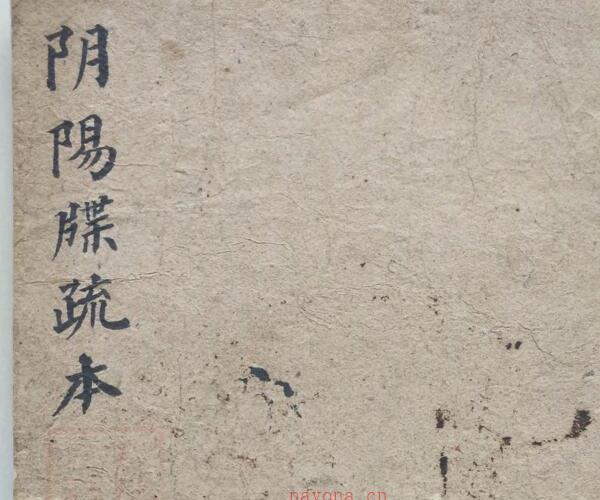 阴陽牒疏本
nayona.cn